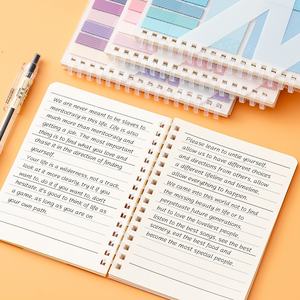 We are never meant to be slaves to
meritocracy in this life. Life is also
much more than meritocracy and
getting a job. The most important
thing is to find what you love and
chase it in the direction of finding
yourself.
Your life is a wilderness, not a track,
look at it more clearly, try it you
want to, do it if you want to, don't
hesitate, it's good to think of life as
a game, as long as you are on
your own path.
Please learn to untie yourself,
allow us to have different choices
and directions from others, allow
a different lifeline and timeline,
allow everything to happen.
We came into this world not to find
the missing beauty in life or to
perpetuate future generations,
but to love the loveliest people,
listen to the best songs, see the best
scenery, eat the best food and
become the most special people.